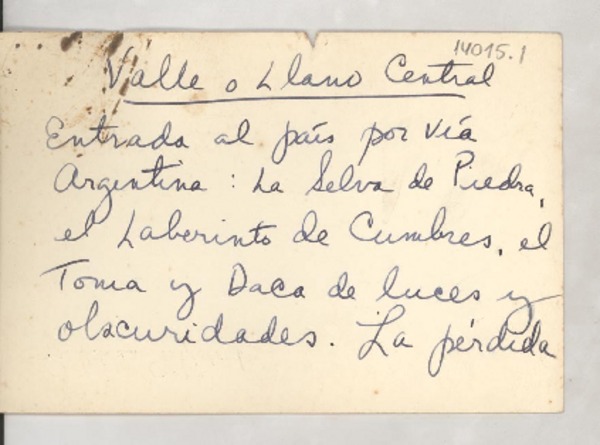 14015.1
Valle o Llano Central
Entrada al país por vía
Argentina: La Selva de Piedra,
el Laberinto de Cumbres, el
Toma y Daca de luces y
obscuridades. La pérdida